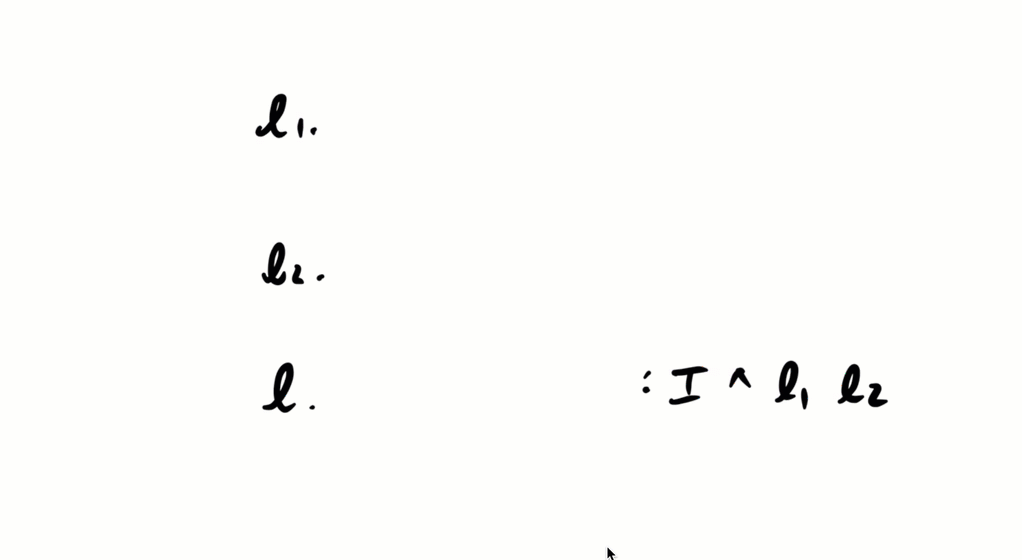 l₁.
l₂.
l. : I ∧ l₁ l₂